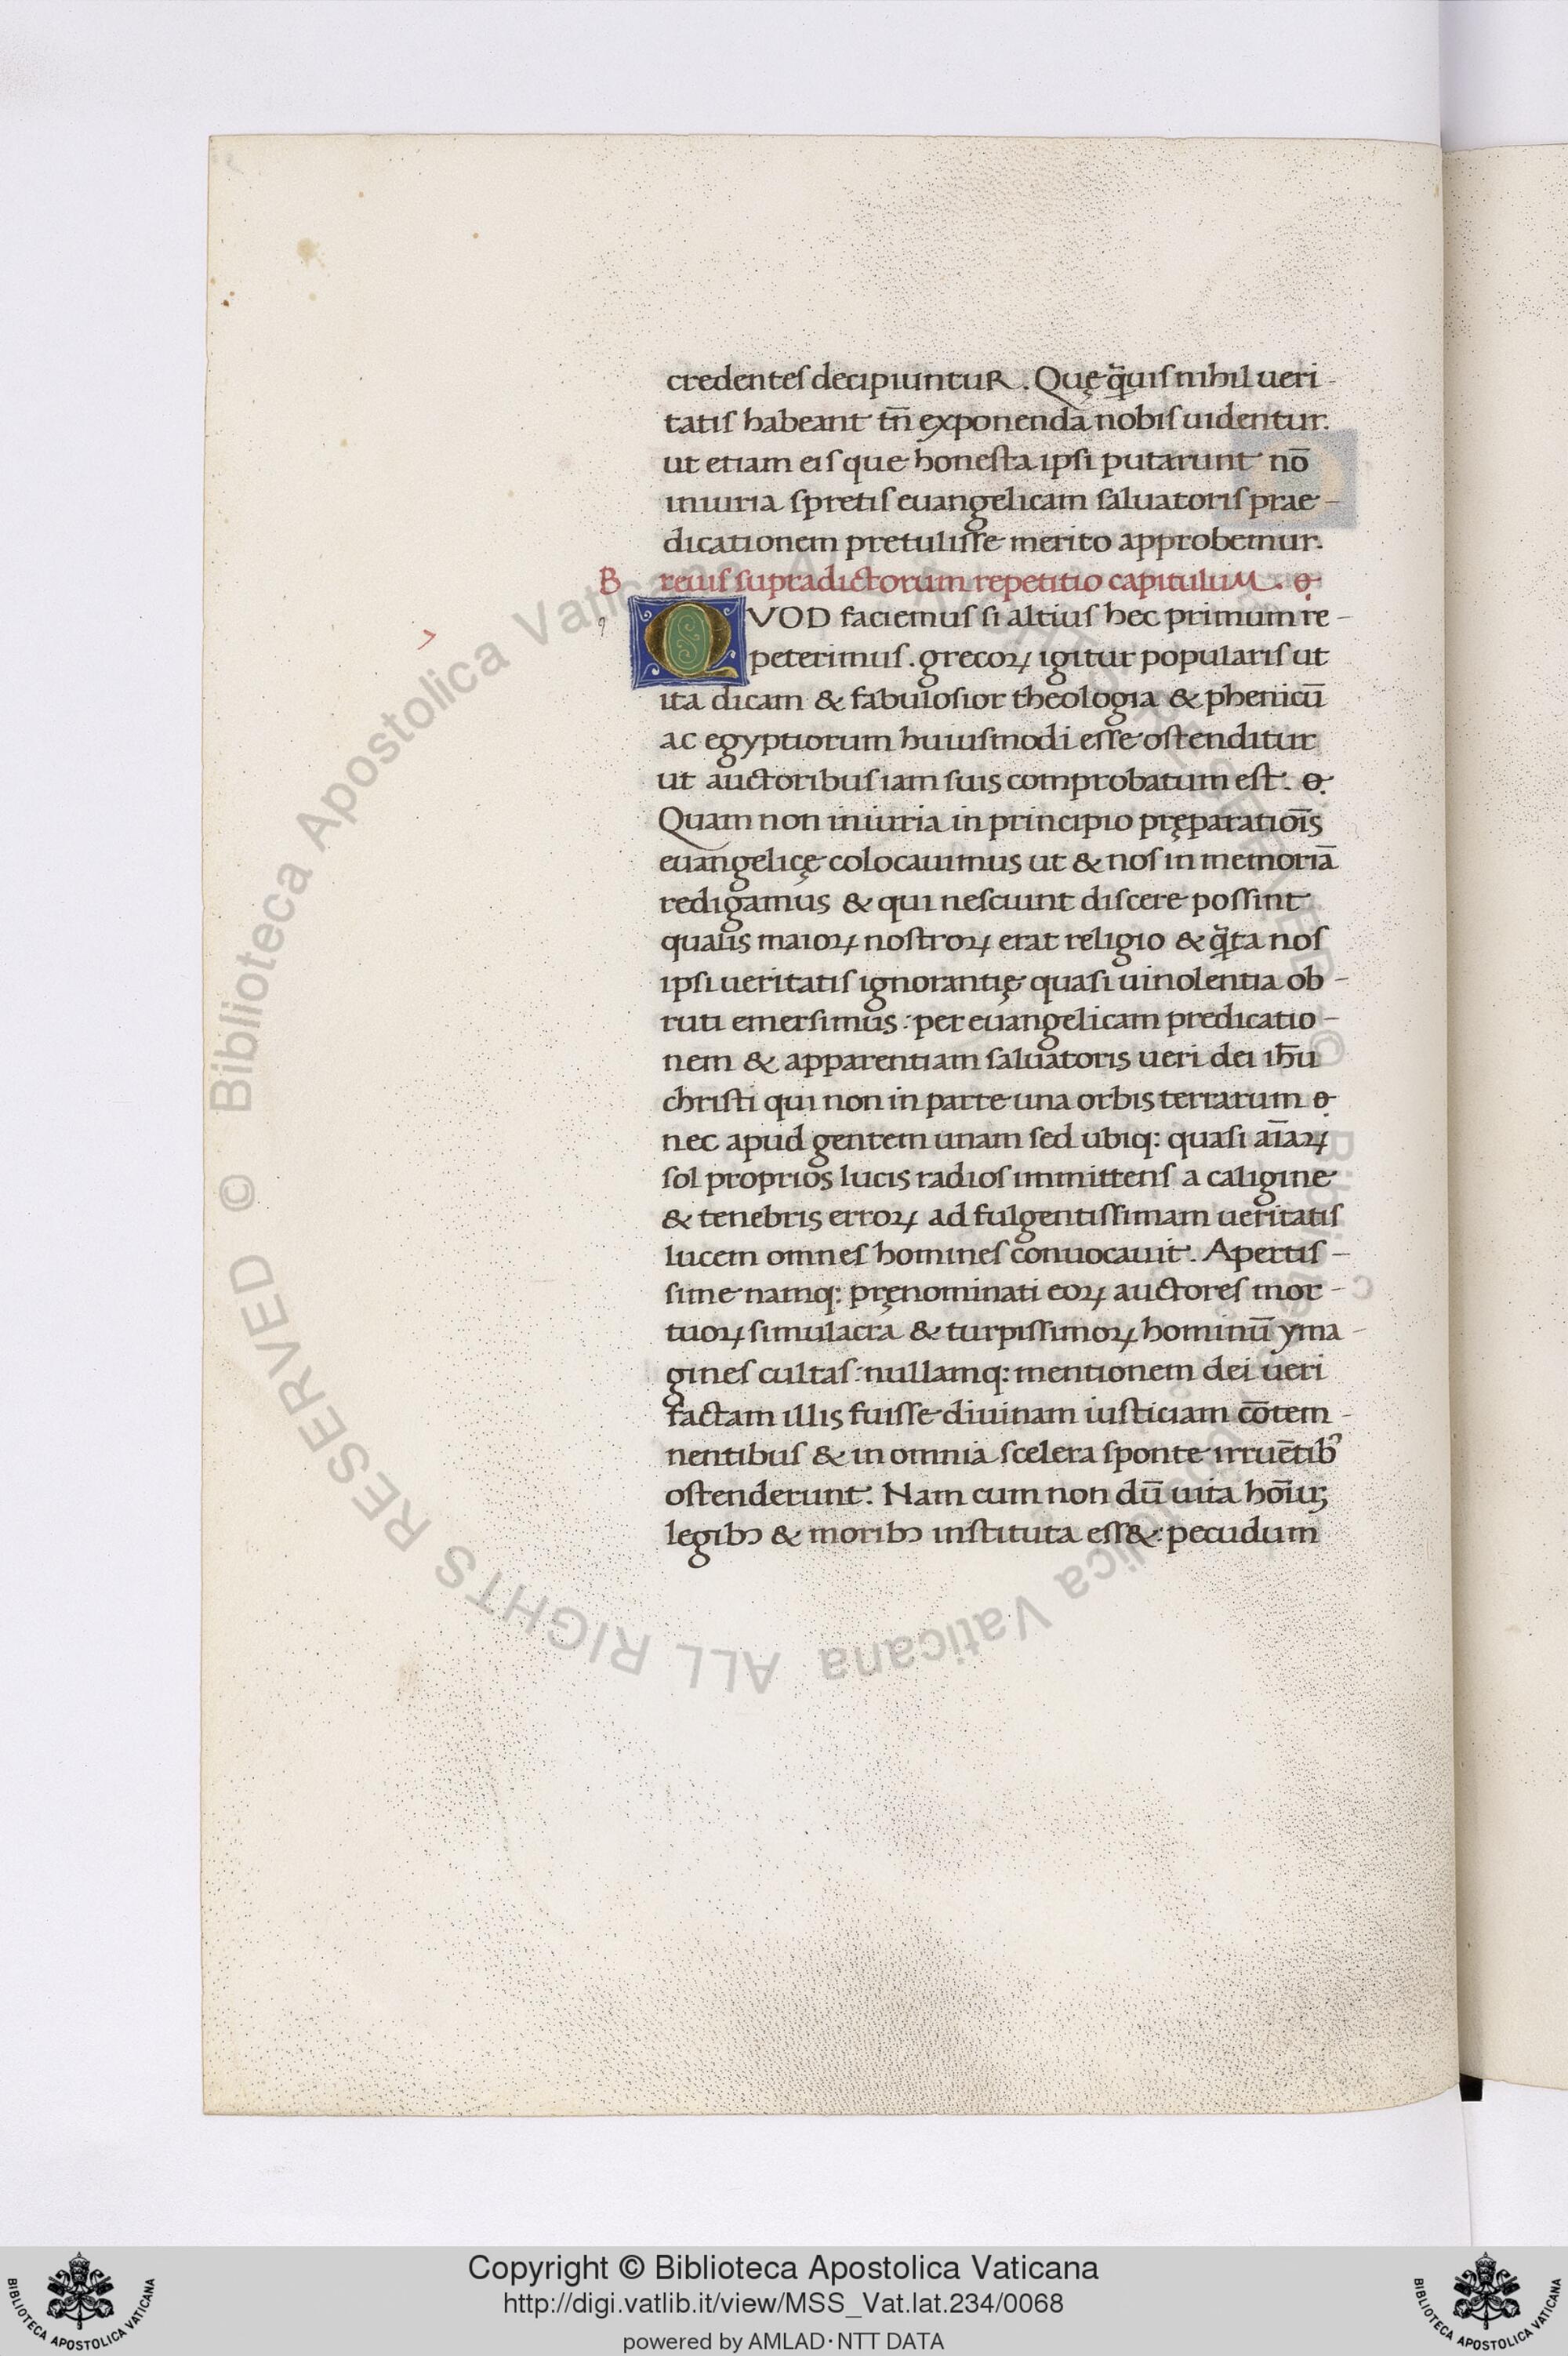 credentes decipiuntuR. Quę q̄uis nihil ueri-
tatis habeant tn̄ exponenda nobis uidentur.
ut etiam eis que honesta ipsi putarunt nō
iniuria spretis euangelicam saluatoris prae-
dicationem pretulisse merito approbemur.
B reuis supradictorum repetitio capituluM.
QVOD faciemus si altius hec primum re-
peterimus. grecoꝝ igitur popularis ut
ita dicam & fabulosior theologia & phenicū
ac egyptiorum huiusmodi esse ostenditur
ut auctoribus iam suis comprobatum est.
Quam non iniuria in principio pręparatioīs
euangelicę colocauimus ut & nos in memoriā
redigamus & qui nesciunt discere possint
qualis maioꝝ nostroꝝ erat religio & q̄ta nos
ipsi ueritatis ignorantię quasi uinolentia ob-
ruti emersimus: per euangelicam predicatio-
nem & apparentiam saluatoris ueri dei ihū
christi qui non in parte una orbis terrarum
nec apud gentem unam sed ubiq: quasi aīaꝝ
sol proprios lucis radios immittens a caligine
& tenebris erroꝝ ad fulgentissimam ueritatis
lucem omnes homines conuocauit. Apertis-
sime namq: pręnominati eoꝝ auctores mor-
tuoꝝ simulacra & turpissimoꝝ hominū yma-
gines cultas: nullamq: mentionem dei ueri
factam illis fuisse diuinam iusticiam cōtem-
nentibus & in omnia scelera sponte irruētibꝰ
ostenderunt. Nam cum non dū uita hoīuꝫ
legibꝰ & moribꝰ instituta ess&: pecudum
Copyright © Biblioteca Apostolica Vaticana
http://digi.vatlib.it/view/MSS_Vat.lat.234/0068
powered by AMLAD·NTT DATA
© Biblioteca Apostolica Vaticana ALL RIGHTS RESERVED
© Biblioteca Apostolica Vaticana ALL RIGHTS RESERVED
BIBLIOTECA APOSTOLICA VATICANA
BIBLIOTECA APOSTOLICA VATICANA